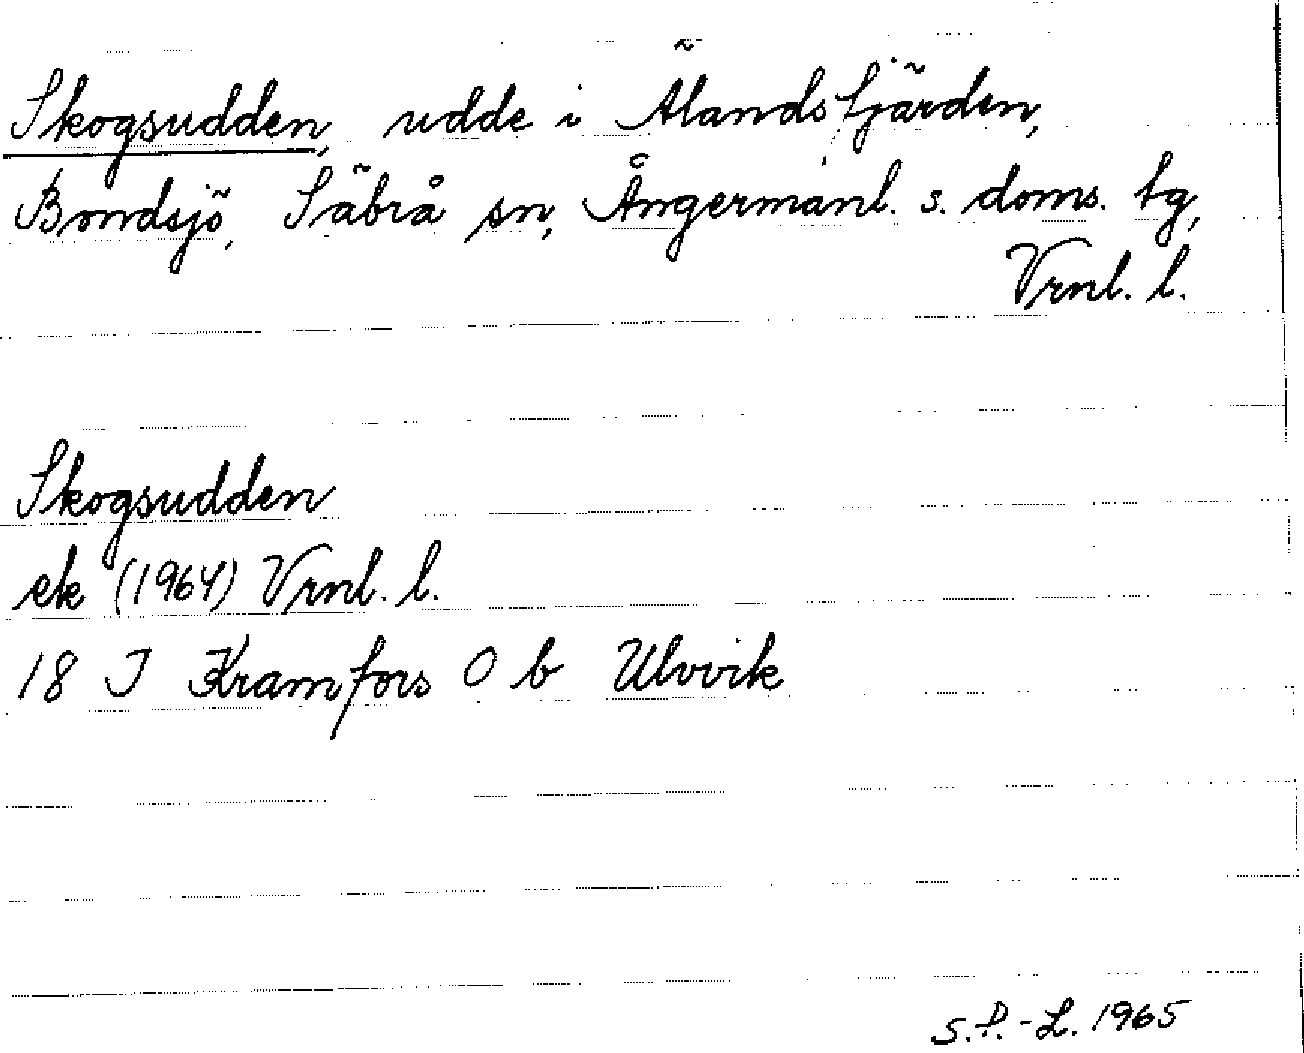 Skogsudden, udde i Älandsfjärden,
Bondsjö, Säbrå sn, Ångermanl. s. doms. tg,
Vrnl. l.
Skogsudden
ek (1964) Vrnl. l.
18 I Kramfors O b Ulvvik
S.P.-L. 1965